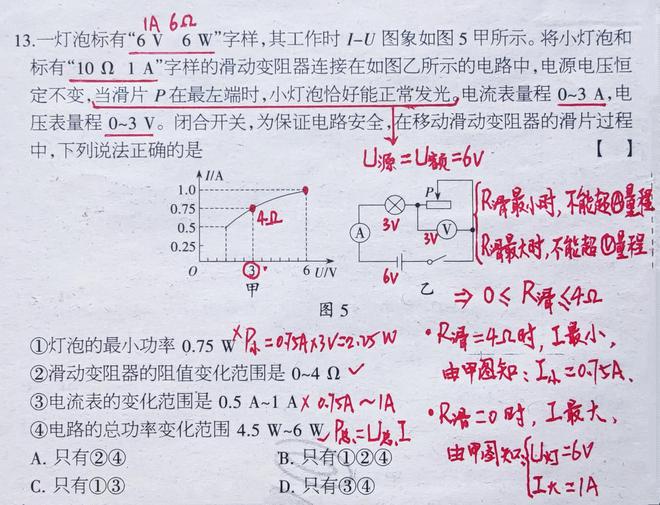 1A 6Ω
13.一灯泡标有“6 V 6 W”字样,其工作时 I-U 图象如图 5 甲所示。将小灯泡和
标有“10 Ω 1 A”字样的滑动变阻器连接在如图乙所示的电路中,电源电压恒
定不变,当滑片 P 在最左端时,小灯泡恰好能正常发光。电流表量程 0~3 A,电
压表量程 0~3 V。闭合开关,为保证电路安全,在移动滑动变阻器的滑片过程
中,下列说法正确的是 【 】
U源=U额=6V
I/A
1.0
0.75
0.5
0.25
O
3
6 U/V
4Ω
甲
P
A
V
3V
3V
6V
乙
R滑最小时,不能超Ⓐ量程
R滑最大时,不能超Ⓥ量程
⇒ 0≤R滑≤4Ω
图 5
①灯泡的最小功率 0.75 W × P小=0.75A×3V=2.25W
②滑动变阻器的阻值变化范围是 0~4 Ω ✓
③电流表的变化范围是 0.5 A~1 A × 0.75A~1A
④电路的总功率变化范围 4.5 W~6 W ✓ P总=U总I
A. 只有②④ B. 只有①②④
C. 只有①③ D. 只有③④
•R滑=4Ω时,I最小,
由甲图知:I小=0.75A、
•R滑=0时,I最大、
由甲图知:
U灯=6V
I大=1A